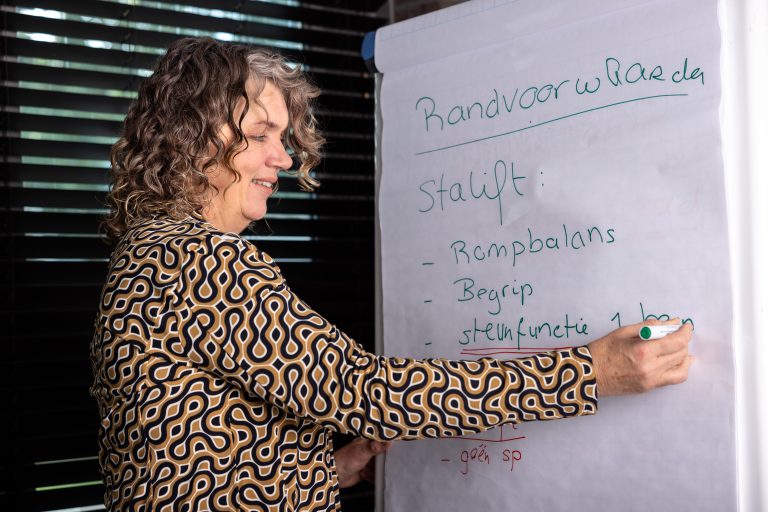 Randvoorwaarde
Stalift:
- Rompbalans
- Begrip
- steunfunctie 1
- geén sp